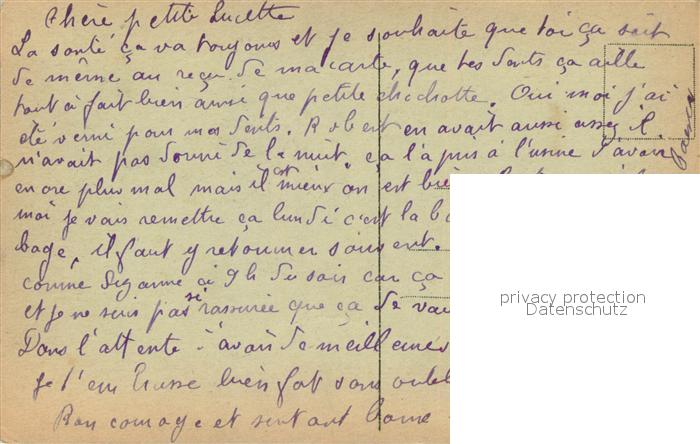 Chère petite Lucette
La santé ça va toujours et je souhaite que toi ça soit
de même au reçu de ma carte, que tes dents ça aille
tout à fait bien ainsi que petite chochotte. Oui moi j'ai
été verni pour mes dents. Robert en avait aussi assez, il
n'avait pas dormi de la nuit, ça l'a pris à l'usine d'avoir
encore plus mal mais il est mieux on est
moi je vais remettre ça lundi c'est la
bage, il faut y retourner souvent.
comme à 9h du soir car ça
et je ne suis pas si rassurée que ça de
Dans l'attente d'avoir de meilleures
Je t'embrasse bien fort sans
Bon courage et surtout bonne
privacy protection
Datenschutz